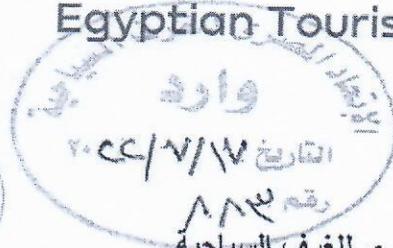 Egyptian Touris
الإتحاد المصرى للغرف السياحية
وارد
التاريخ ٢٠٢٢/٧/١٧
رقم ٨٨٣
للغرف السياحية